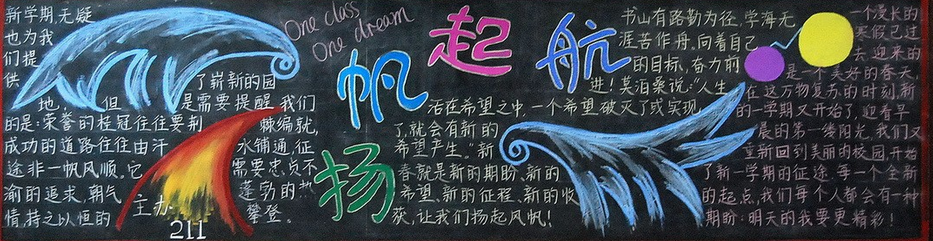 新学期,无疑
也为我
们提
供 了崭新的园
地, 但 是需要提醒 我们
的是:荣誉的桂冠往往要荆 棘编就,
成功的道路往往由汗 水铺通,征
途非一帆风顺。它 需要忠贞不
渝的追求,朝气 蓬勃的热
情,持之以恒的 攀登。
主办
211
One class
One dream
扬帆起航
书山有路勤为径,学海无
涯苦作舟,向着自己
的目标,奋力前
进!莫泊桑说:"人生
活在希望之中 一个希望破灭了或实现
了,就会有新的
希望产生。"新
春就是新的期盼、新的
希望、新的征程、新的收
获,让我们扬起风帆!
一个漫长的
寒假已过
去 迎来的
是一个美好的春天
在这万物复苏的时刻,新
的一学期又开始了,迎着早
晨的第一缕阳光,我们又
重新回到美丽的校园,开始
了新一学期的征途,每一个全新
的起点,我们每个人都会有一种
期盼:明天的我要更精彩!